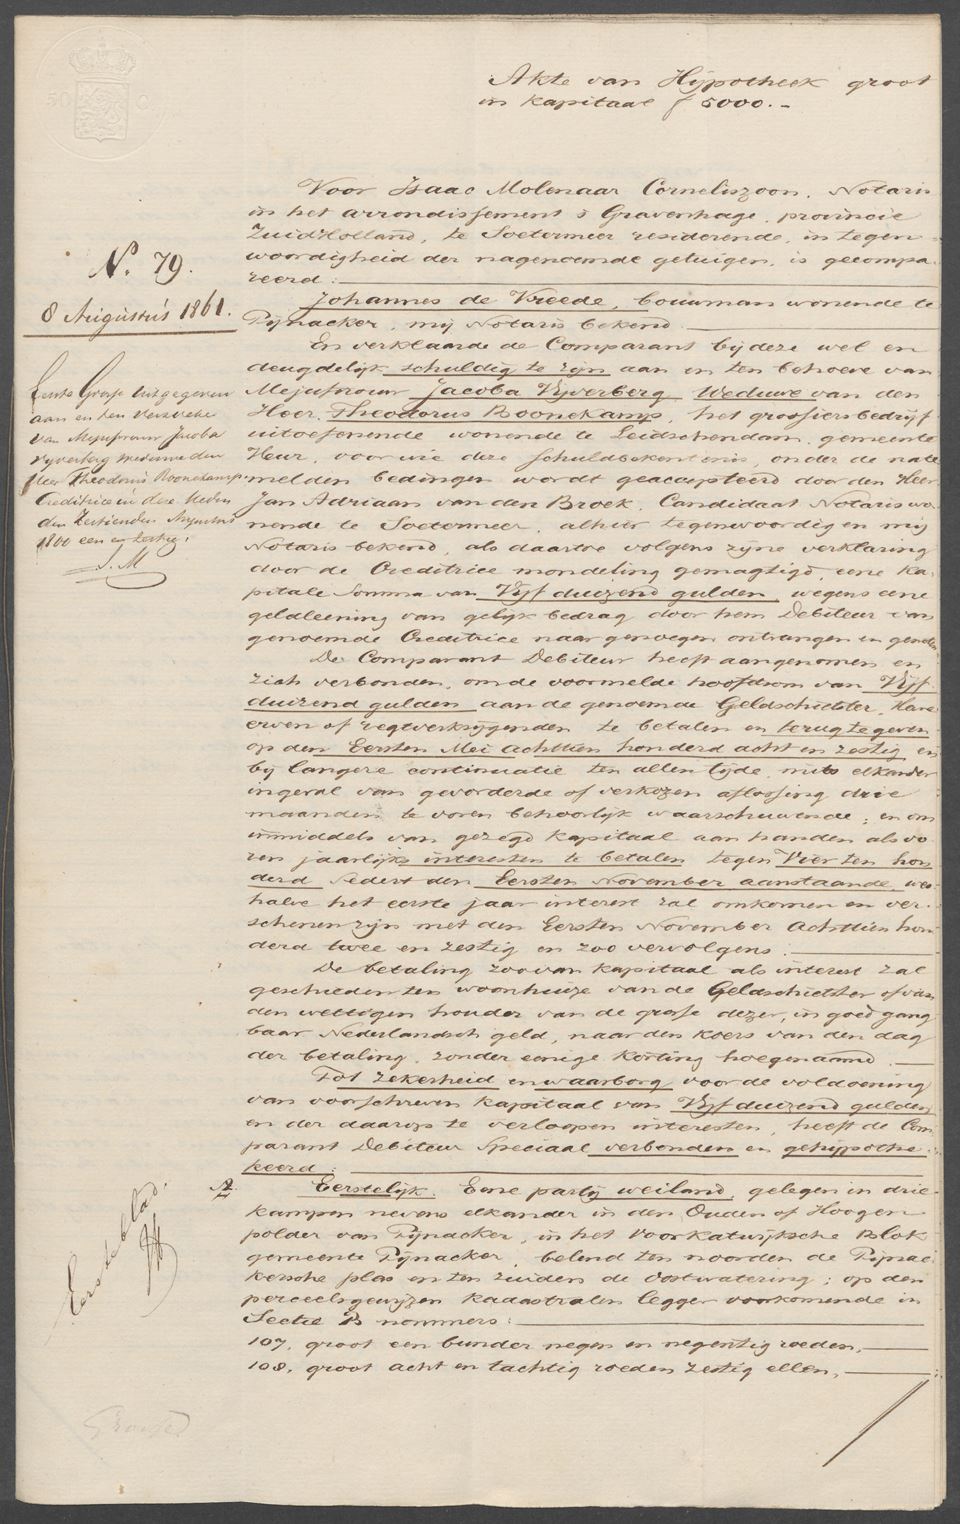 Akte van Hijpotheek groot
in kapitaal f 5000.-
Voor Isaac Molenaar Corneliszoon, Notaris
in het arrondissement s Gravenhage, provincie
Zuidholland, te Soetermeer resideerende, in tegen
woordigheid der nagenoemde getuigen, is gecompa-
reerd:
Johannes de Vreede, bouwman wonende te
Pijnacker, mij Notaris bekend.
En verklaarde de Comparant bij deze wel en
deugdelijk schuldig te zijn aan en ten behoeve van
Mejufvrouw Jacoba Vijverberg Weduwe van den
Heer Theodorus Boonekamp, het grossiersbedrijf
uitoefenende wonende te Leidschendam, gemeente
Veur, voor wie deze schuldbekentenis, onder de nate
melden bedingen wordt geaccepteerd door den Heer
Jan Adriaan van den Broek, Candidaat Notaris wo-
nende te Soetermeer, alhier tegenwoordig en mij
Notaris bekend, als daartoe volgens zijne verklaring
door de Creditrice mondeling gemagtigd, eene ka-
pitale Somma van Vijf duizend gulden, wegens eene
geldleening van gelijk bedrag door hem Debiteur van
genoemde Creditrice naar genoegen ontvangen en genoten
De Comparant Debiteur heeft aangenomen en
zich verbonden, om de voormelde hoofdsom van Vijf
duizend gulden aan de genoemde Geldschietster, Hare
erven of regtverkrijgenden te betalen en terug te geven
op den Eersten Mei achttien honderd acht en zestig en
bij langere continuatie ten allen tijde, mits elkander
ingeval van gevorderde of verkozen aflossing drie
maanden te voren behoorlijk waarschuwende; en om
inmiddels van gezegd kapitaal aan handen als vo
ren jaarlijks interesten te betalen tegen Vier ten hon
derd sedert den Eersten November aanstaande, wes-
halve het eerste jaar interest zal omkomen en ver-
schenen zijn met den Eersten November Achttien hon
derd twee en zestig en zoo vervolgens.
De betaling zoo van kapitaal als interest zal
geschieden ten woonhuize van de Geldschietster of van
den wettigen houder van de grosse dezer, in goed gang
baar Nederlandsch geld, naar den koers van den dag
der betaling, zonder eenige korting hoegenaamd.
Tot zekerheid en waarborg voor de voldoening
van voorschreven kapitaal van Vijf duizend gulden
en der daarop te verloopen interesten, heeft de Com
parant Debiteur Speciaal verbonden en gehijpothe-
keerd:
Eerstelijk. Eene partij weiland, gelegen in drie
kampen nevens elkander in den Ouden of Hoogen
polder van Pijnacker, in het Voorkatwijksche Blok
gemeente Pijnacker, belend ten noorden de Pijnac
kersche plas en ten zuiden de Oostwatering; op den
perceelsgewijzen kadastralen legger voorkomende in
Sectie B nommers:
107. groot een bunder negen en negentig roeden,
108. groot acht en tachtig roeden zestig ellen,
No. 79.
8 Augustus 1861.
Eerste Grosse uitgegeven
aan en ten verzoeke
van Mejufvrouw Jacoba
Vijverberg weduwe den
Heer Theodorus Boonekamp
Creditrice in deze heden
den Augustus
1800 een en zestig.
J. M
Eerste blad.
50 C